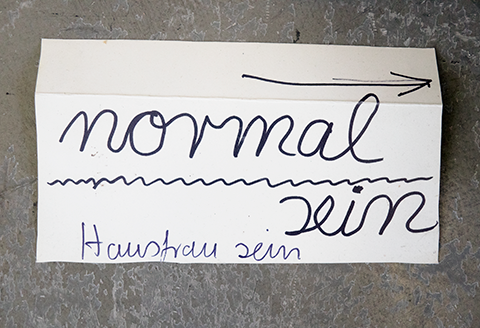 normal
sein
Hausfrau sein